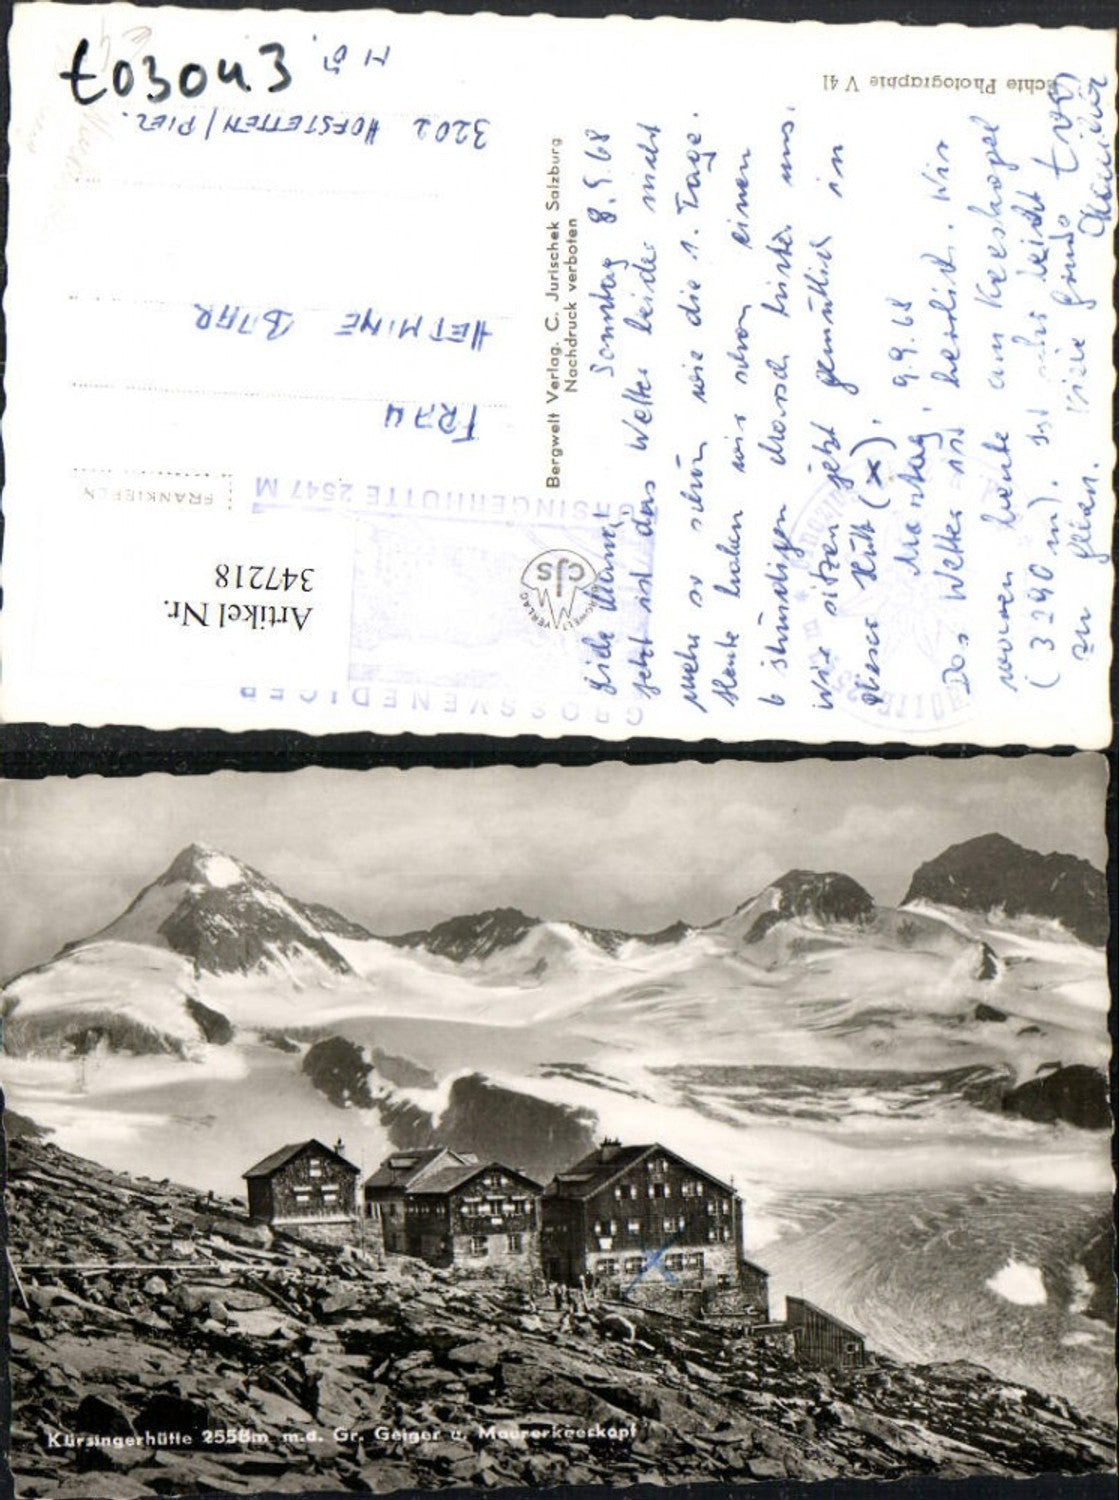 echte Photographie V 41
Bergwelt Verlag, C. Jurischek Salzburg
Nachdruck verboten
CJS
BERGWELT VERLAG
GROSSVENEDIGER
KÜRSINGERHÜTTE 2547 M
Artikel Nr.
347218
FRANKIEREN
FRAU
HERMINE BAAR
3202 HOFSTETTEN/PIEL.
N Ö.
Sonntag 8.9.68
Liebe Mama!
Jetzt ist das Wetter leider nicht
mehr so schön wie die 1. Tage.
Heute haben wir schon einen
6 stündigen Marsch hinter uns.
Wir sitzen jetzt gemütlich in
dieser Hütte (x).
Montag, 9.9.68
Das Wetter ist herrlich. Wir
waren heute am Keeskogel
(3290 m). Ist sehr leicht
zu gehen. Viele Grüße
Kürsingerhütte 2558m m.d. Gr. Geiger u. Maurerkeeskopf